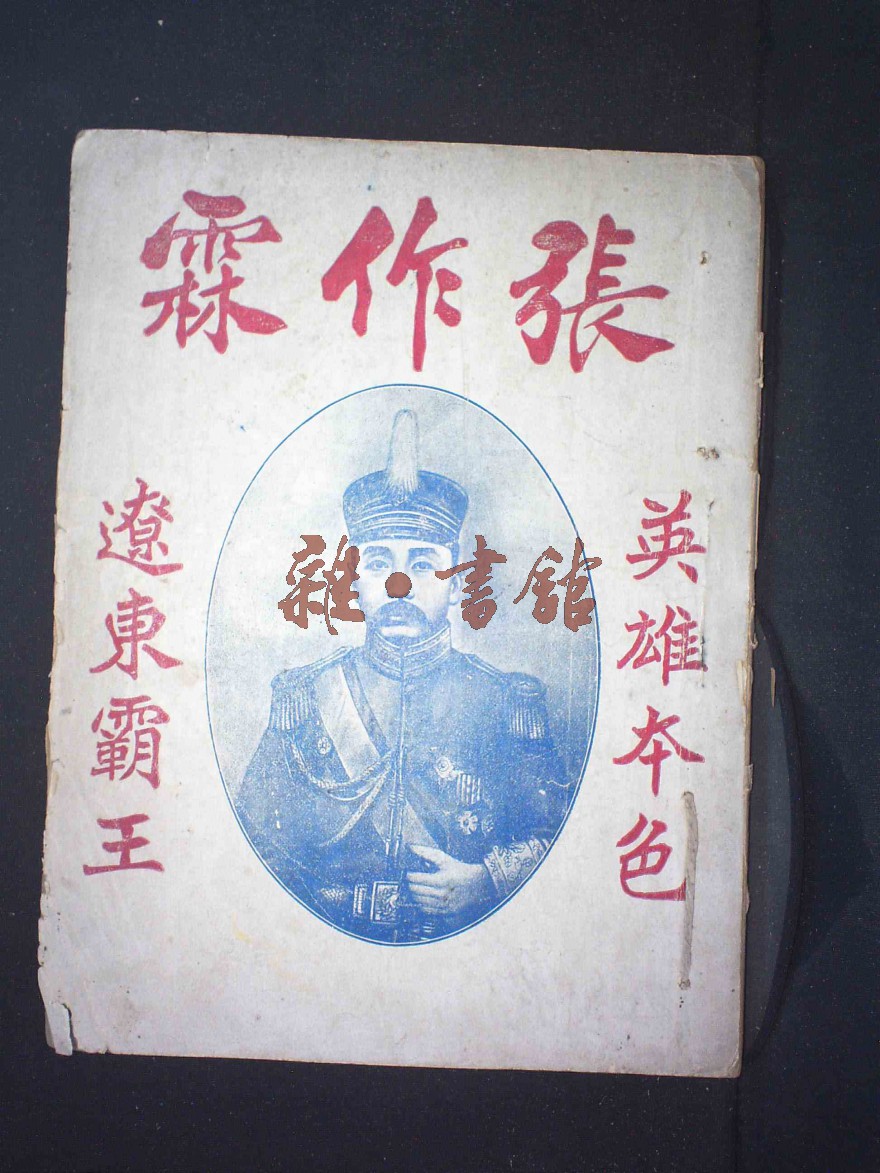 張作霖
英雄本色
遼東霸王
雜·書館